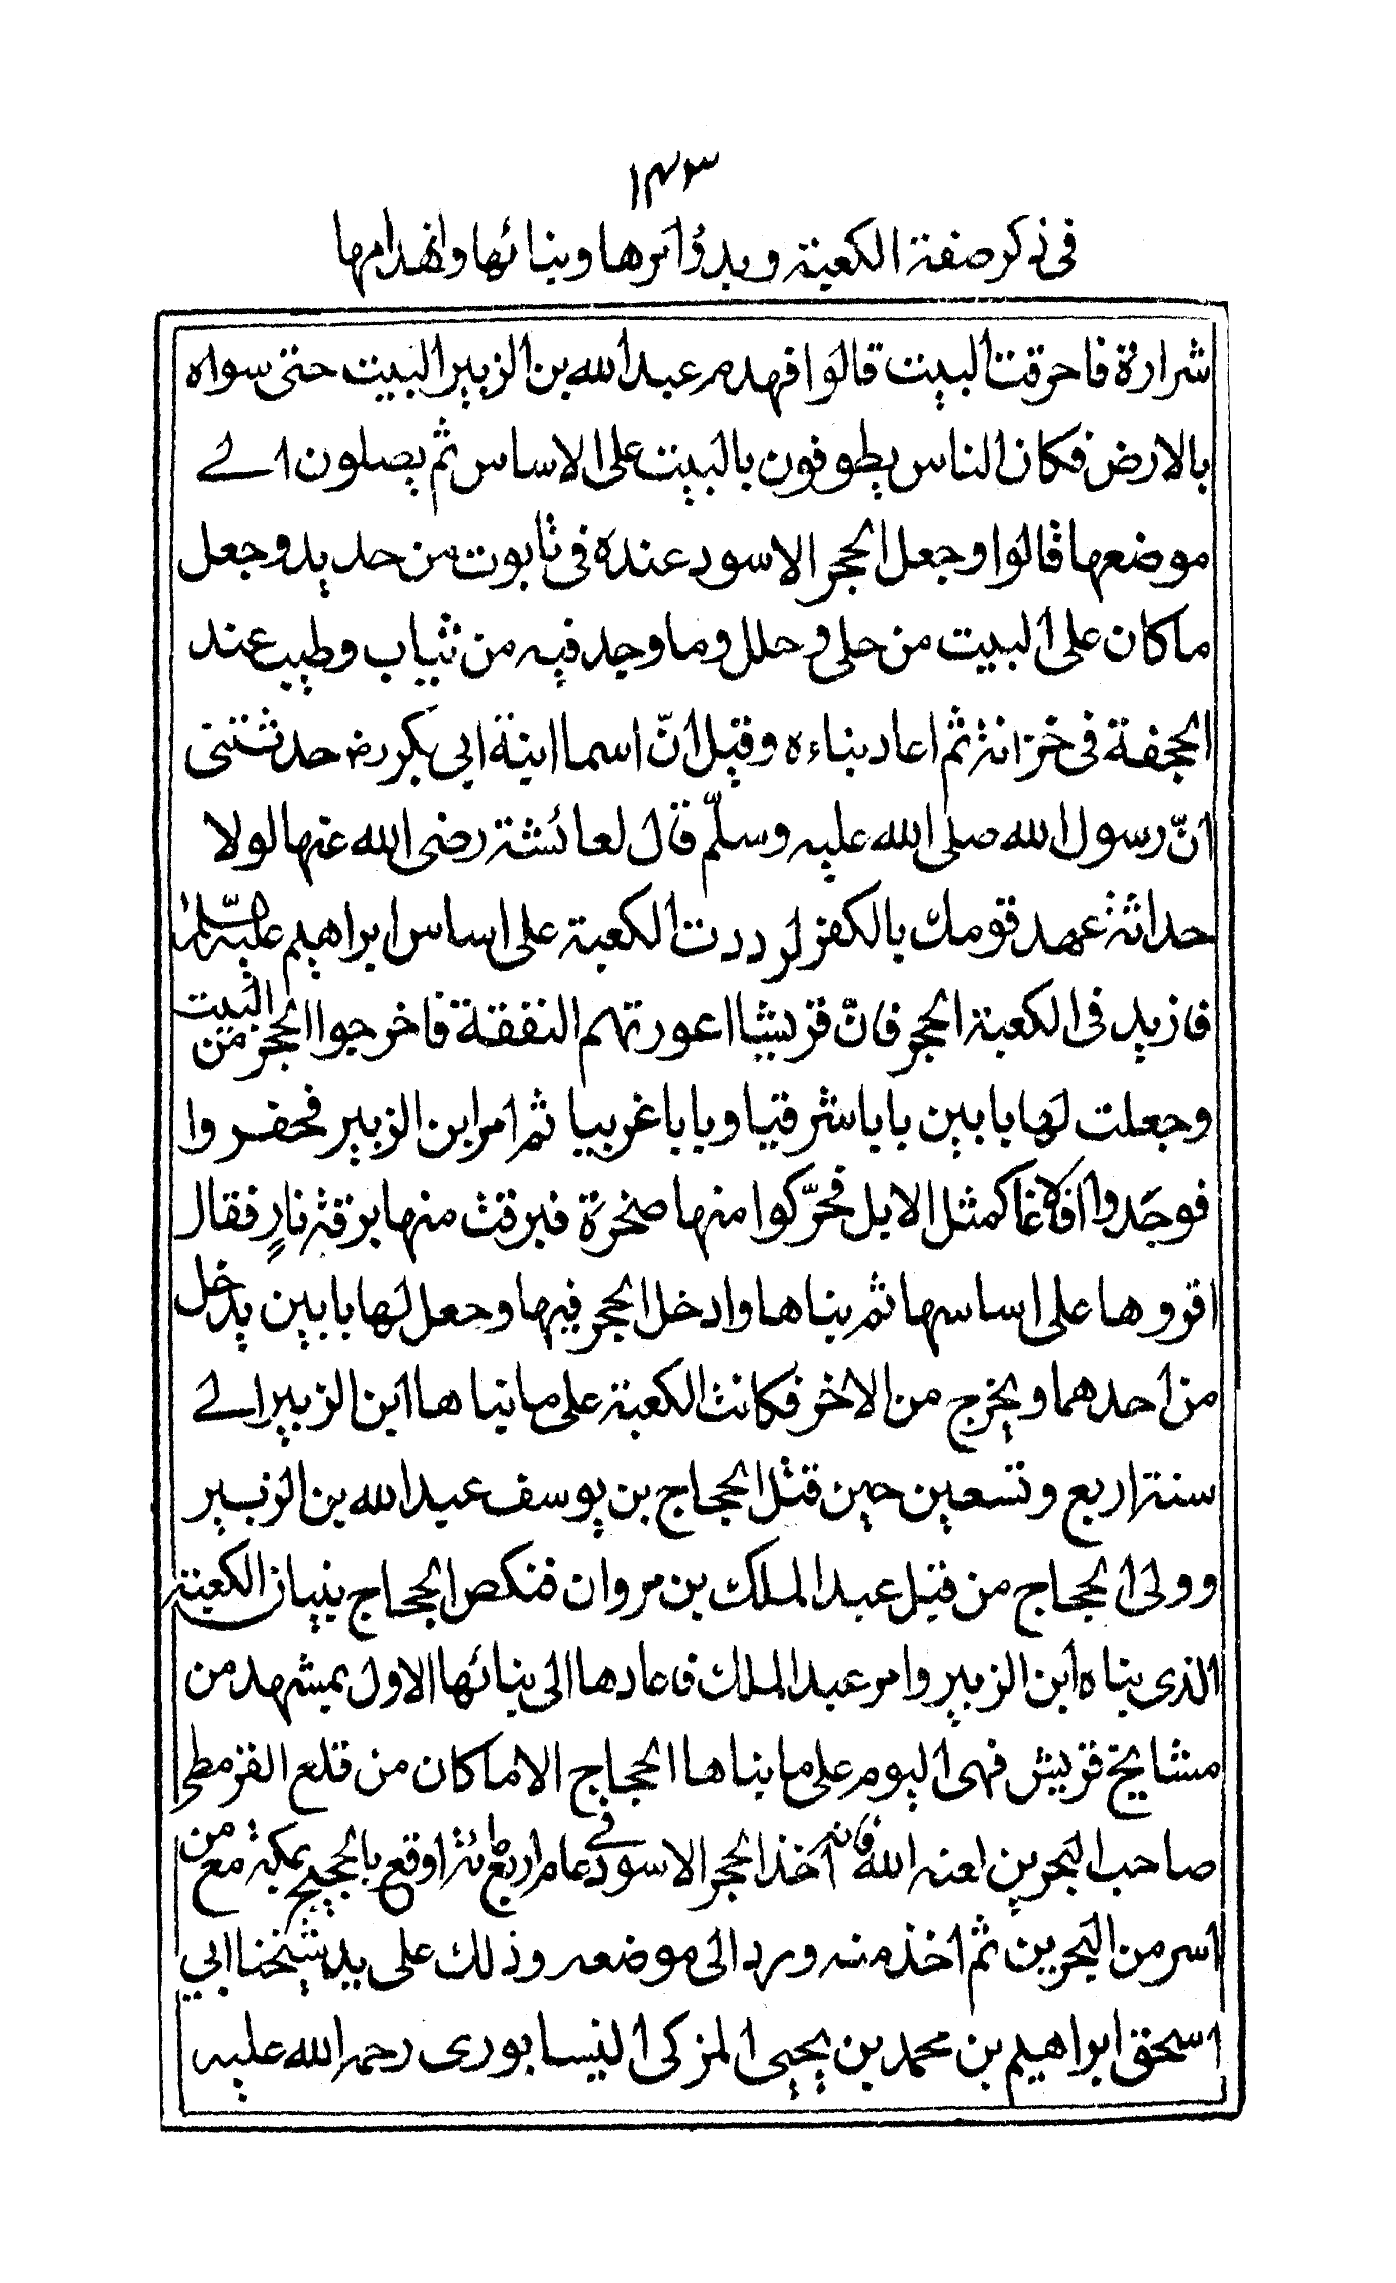 ١٤٣
فى ذكر صفة الكعبة وبدؤ امرها وبنائها وانهدامها
شرارة فاحرقت البيت قالوا فهدم عبد الله بن الزبير البيت حتى سواه
بالارض فكان الناس يطوفون بالبيت على الاساس ثم يصلون الى
موضعها قالوا وجعل الحجر الاسود عنده فى تابوت من حديد وجعل
ما كان على البيت من حلى و حلل وما وجد فيه من ثياب وطيب عند
الحجفة فى خزانة ثم اعاد بناءه وقيل انّ اسما ابنة ابى بكر رض حدثتنى
انّ رسول الله صلى الله عليه وسلّم قال لعائشة رضى الله عنها لولا
حداثة عهد قومك بالكفر لرددت الكعبة على اساس ابراهيم عليه السّلم
فازيد فى الكعبة الحجر فانّ قريشا اعورتهم النفقة فاخرجوا الحجر من البيت
وجعلت لها بابين بابا شرقيا وبابا غربيا ثم امر ابن الزبير فحفروا
فوجَدوا افلاغا كمثل الابل فحرّكوا منها صخرة فبرقت منها برقة نارٍ فقال
اقروها على اساسها ثم بناها وادخل الحجر فيها وجعل لها بابين يدخل
من احدهما ويخرج من الاخر فكانت الكعبة على ما بناها ابن الزبير الى
سنة اربع وتسعين حين قتل الحجاج بن يوسف عبد الله بن الزبير
وولى الحجاج من قبل عبد الملك بن مروان فنكص الحجاج بنيان الكعبة
الذى بناه ابن الزبير وامر عبد الملك فاعادها الى بنائها الاول بمشهد من
مشايخ قريش فهى اليوم على ما بناها الحجاج الا ما كان من قلع القرمطى
صاحب البحرين لعنه الله فانه اخذ الحجر الاسود فى عام اربع مائة اوقع بالحجيج بمكة مع من
اسر من البحرين ثم اخذ منه ورد الى موضعه وذلك على يد شيخنا ابى
اسحق ابراهيم بن محمد بن يحيى المزكى النيسابورى رحمه الله عليه